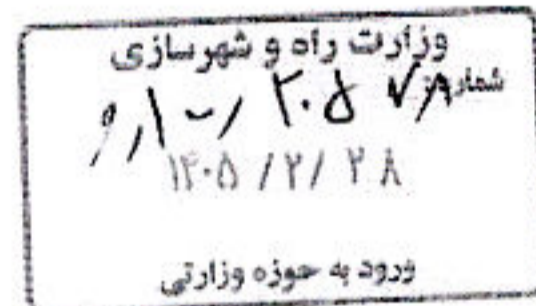 وزارت راه و شهرسازی
شماره: ۲۰۵۷۸
۱۴۰۵/۲/۲۸
ورود به حوزه وزارتی